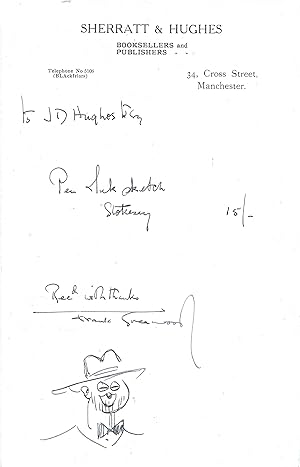 SHERRATT & HUGHES
BOOKSELLERS and
PUBLISHERS - -
Telephone No 5106
(BLAckfriars)
34, Cross Street,
Manchester.
to J D Hughes Esq
Pen & Ink sketch
15/-
Recd with thanks
Frank Greenwood